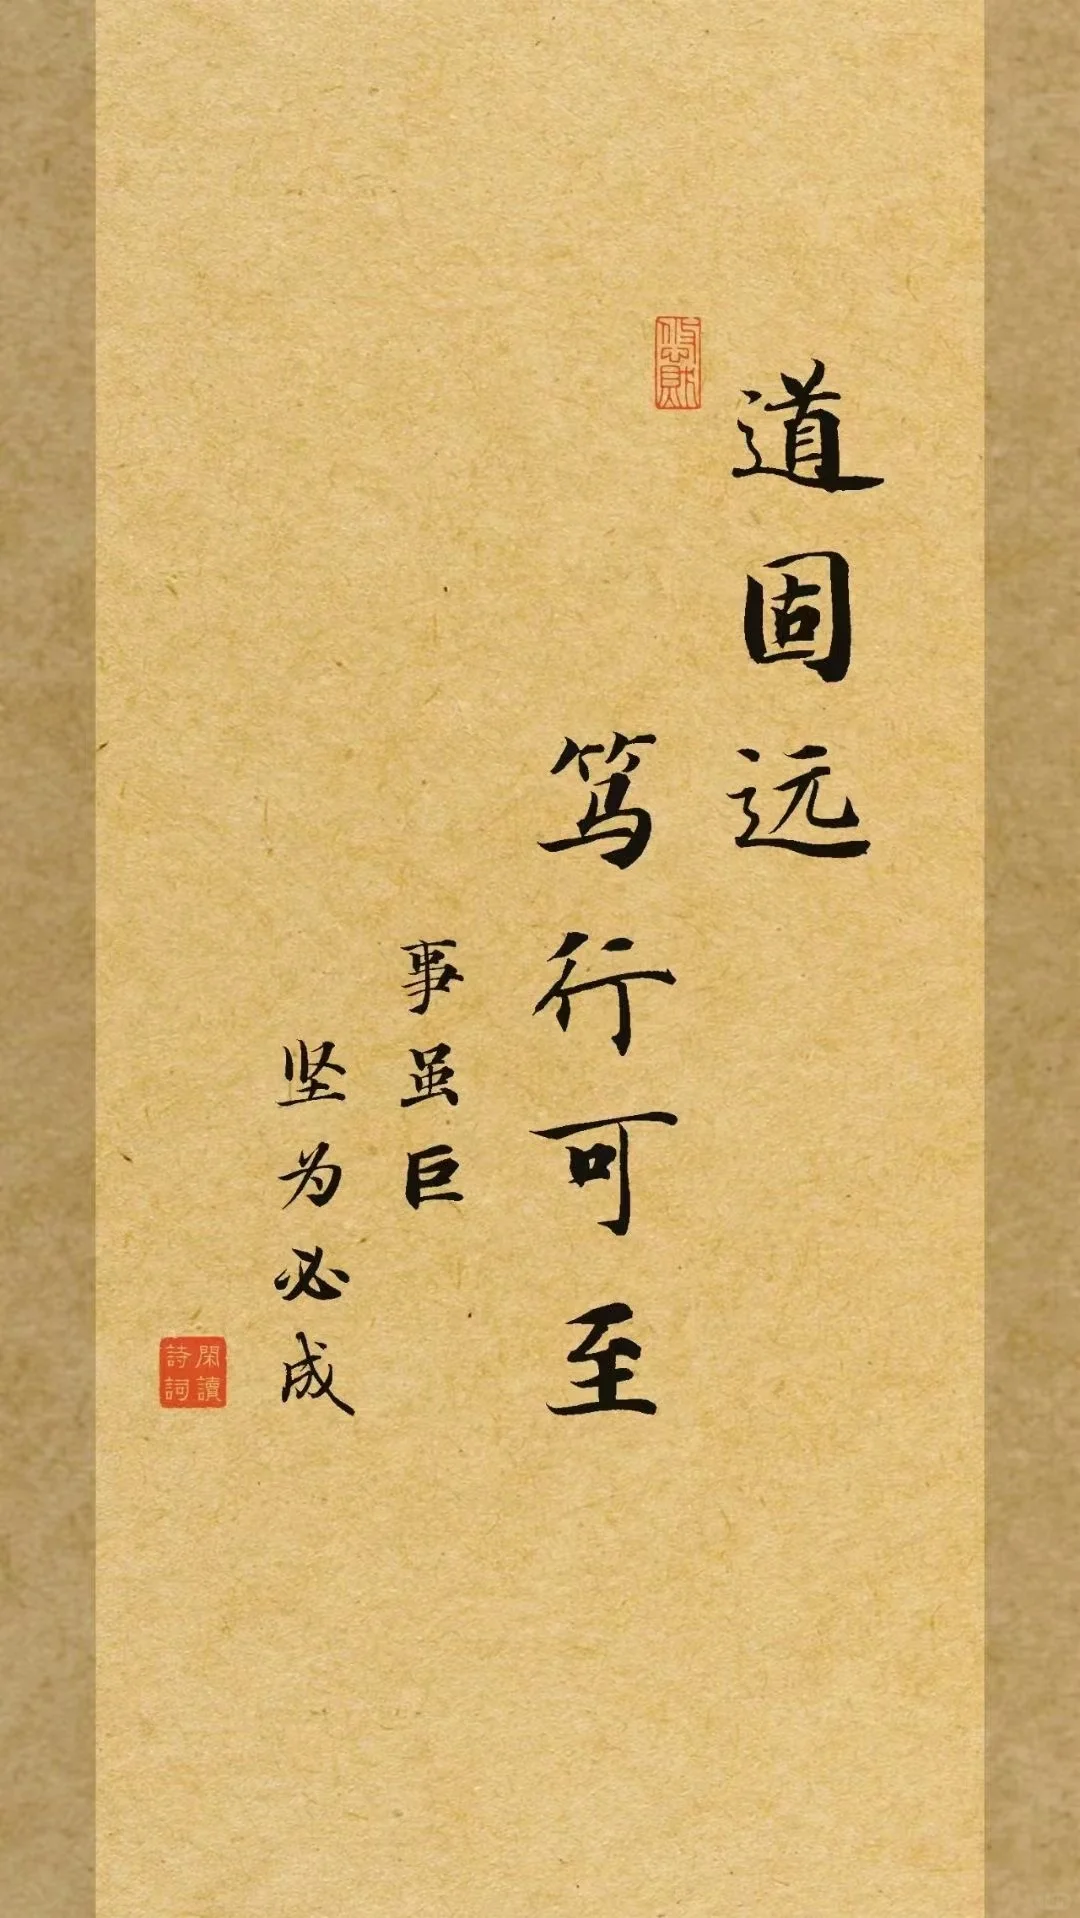 道固远
笃行可至
事虽巨
坚为必成
閑讀
詩詞